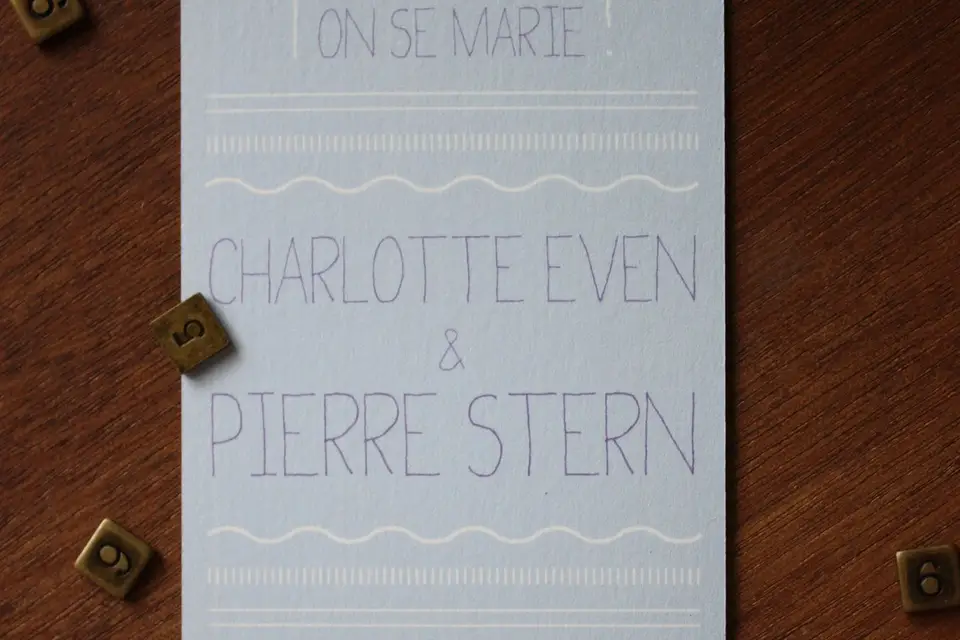 ON SE MARIE
CHARLOTTE EVEN
&
PIERRE STERN
5
9
6